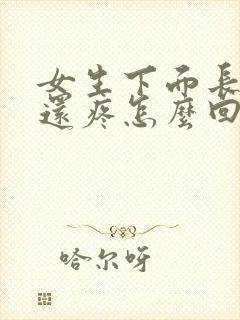 女生下面長
還疼怎麼回
哈尔呀